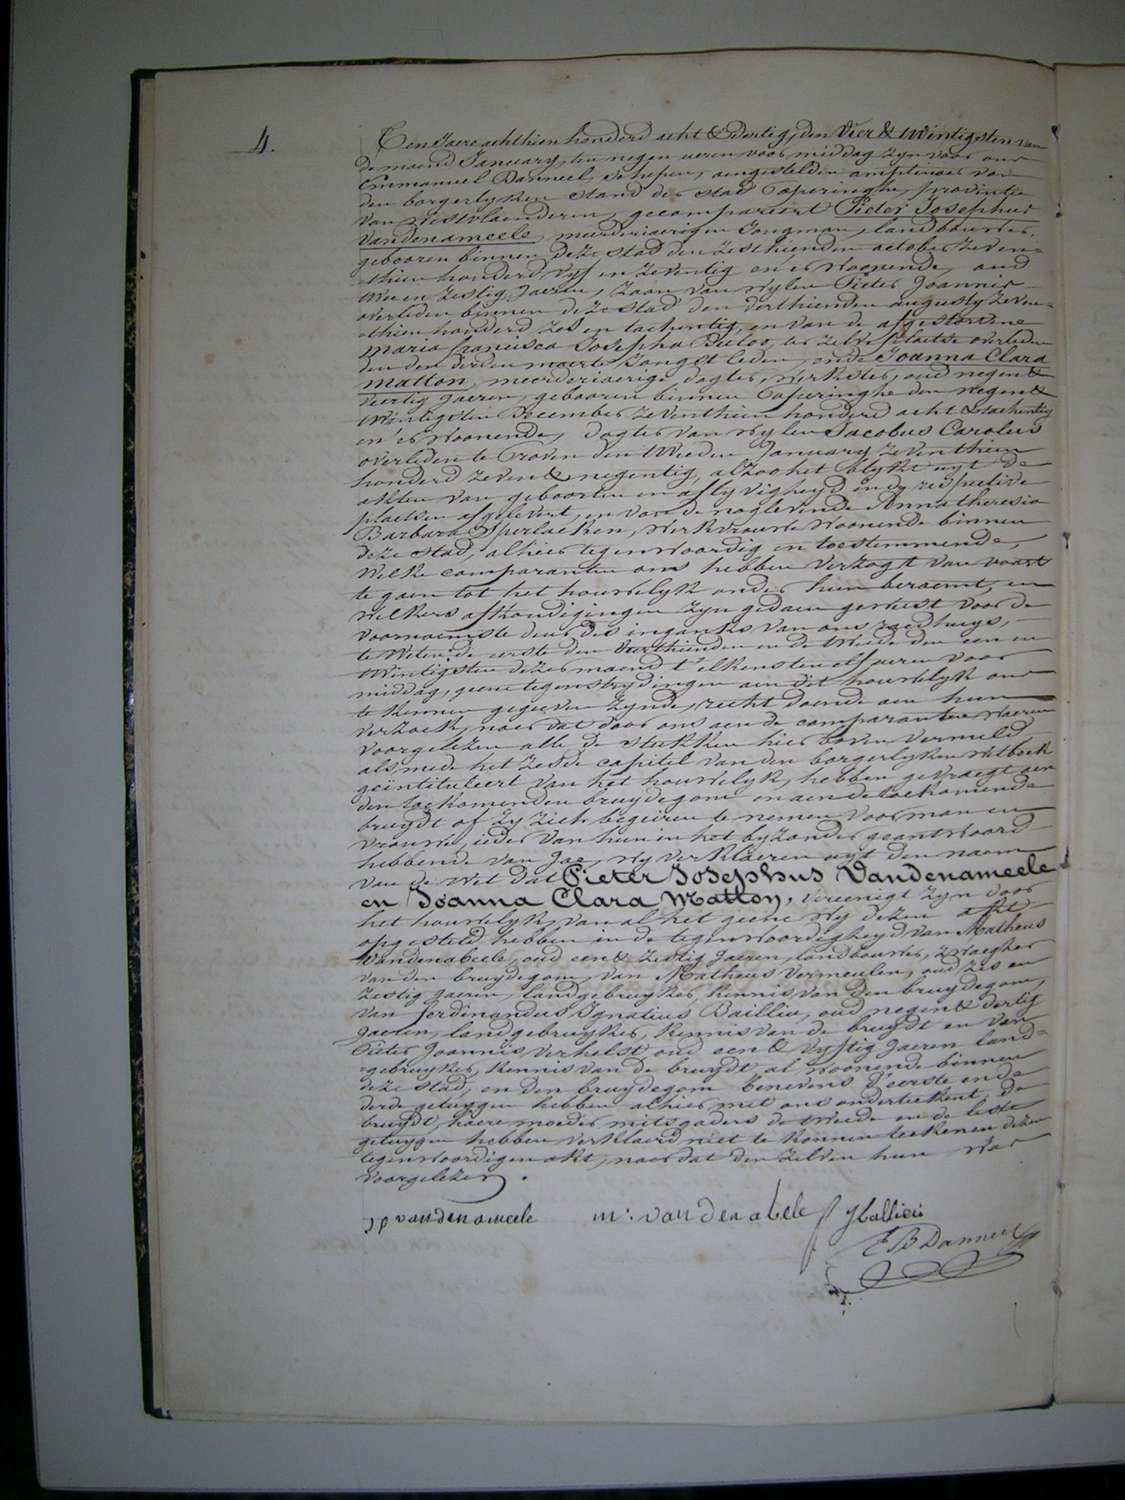 4.
Ten Jaere achthien honderd acht & dertig, den Vier & twintigsten van
de maend January, ten negen ueren voor middag zyn voor ons
Emmanuel Danneel, schepen, aengestelden amptenaer van
den borgerlyken stand der stad Poperinghe, provintie
van Westvlaenderen, gecompareert Pieter Josephus
Vandenameele, meerderjaerigen Jongman, landbouwer,
gebooren binnen deze stad den zesthienden october zeven-
thien honderd vyf en zeventig en er woonende, oud
twee en zestig Jaeren, zoon van wylen Pieter Joannes
overleden binnen deze stad den derthienden augusty zeven-
thien honderd zes en tachentig, en van de afgestorvene
Maria francisca Josepha ter zelve plaetse overleden
den derden maerte Jongst leden, ende Joanna Clara
Matton, meerderjaerige dogter, werkster, oud negen &
veertig Jaeren, gebooren binnen Poperinghe den negen &
twintigsten December zeventhien honderd acht & tachentig
en er woonende, dogter van wylen Jacobus Carolus
overleden te Proven den tweeden January zeventhien
honderd zeven & negentig, alzoo het blykt uyt de
akten van geboorten en aflyvigheyd in de respective
plaetsen afgelevert, en van de naglevende Anna theresia
Barbara werkvrouwe woonende binnen
deze stad, alhier tegenwoordig en toestemmende,
Welke comparanten ons hebben verzogt van voort
te gaen tot het houwelyk onder hun beraemt, en
welkers afkondigingen zyn gedaen geweest voor de
voornaemste deur des ingangs van ons raedhuys,
te weten: de eerste den veerthienden en de tweede den een en
twintigsten dezer maend t'elkens ten elf ueren voor
middag, geene tegenstrydingen aen dit houwelyk ons
te kennen gegeven zynde, recht doende aen hun
verzoek, naer dat door ons aen de comparanten waeren
voorgelezen alle de stukken hier boven vermeld
als mede het zesde capittel van den borgerlyken wetboek
geintituleert van het houwelyk, hebben gevraegt aen
den toekomenden bruydegom en aen de toekomende
bruydt of zy zich begeiren te nemen voor man en
vrouwe, ieder van hun in het byzonder geantwoord
hebbende van Jae, wy verklaeren uyt den naem
van de wet dat Pieter Josephus Vandenameele
en Joanna Clara Matton, vereenigt zyn door
het houwelyk, van al het geene wy dezen akt
opgesteld hebben in de tegenwoordigheyd van Matheus
Vandenabeele, oud een & zestig Jaeren, landbouwer, zwaegher
van den bruydegom, van Matheus Vermeulen, oud zes en
zestig Jaeren, landgebruyker, kennis van den bruydegom,
van ferdinandus Ignatius Baillieu, oud negen & dertig
Jaeren, landgebruyker, kennis van de bruydt en van
Pieter Joannes Verhelst oud een & vyftig Jaeren land-
gebruyker, kennis van de bruydt, al woonende binnen
deze stad, en den bruydegom benevens d'eerste en de
derde getuygen hebben alhier met ons onderteekent, de
bruydt, haere moeder mitsgaders de tweede en de leste
getuygen hebben verklaerd niet te konnen teekenen dezen
tegenwoordigen akt, naer dat den zelven hun was
voorgelezen.
J P vandenameele m: vandenabele f J Ballieu
E B Danneel